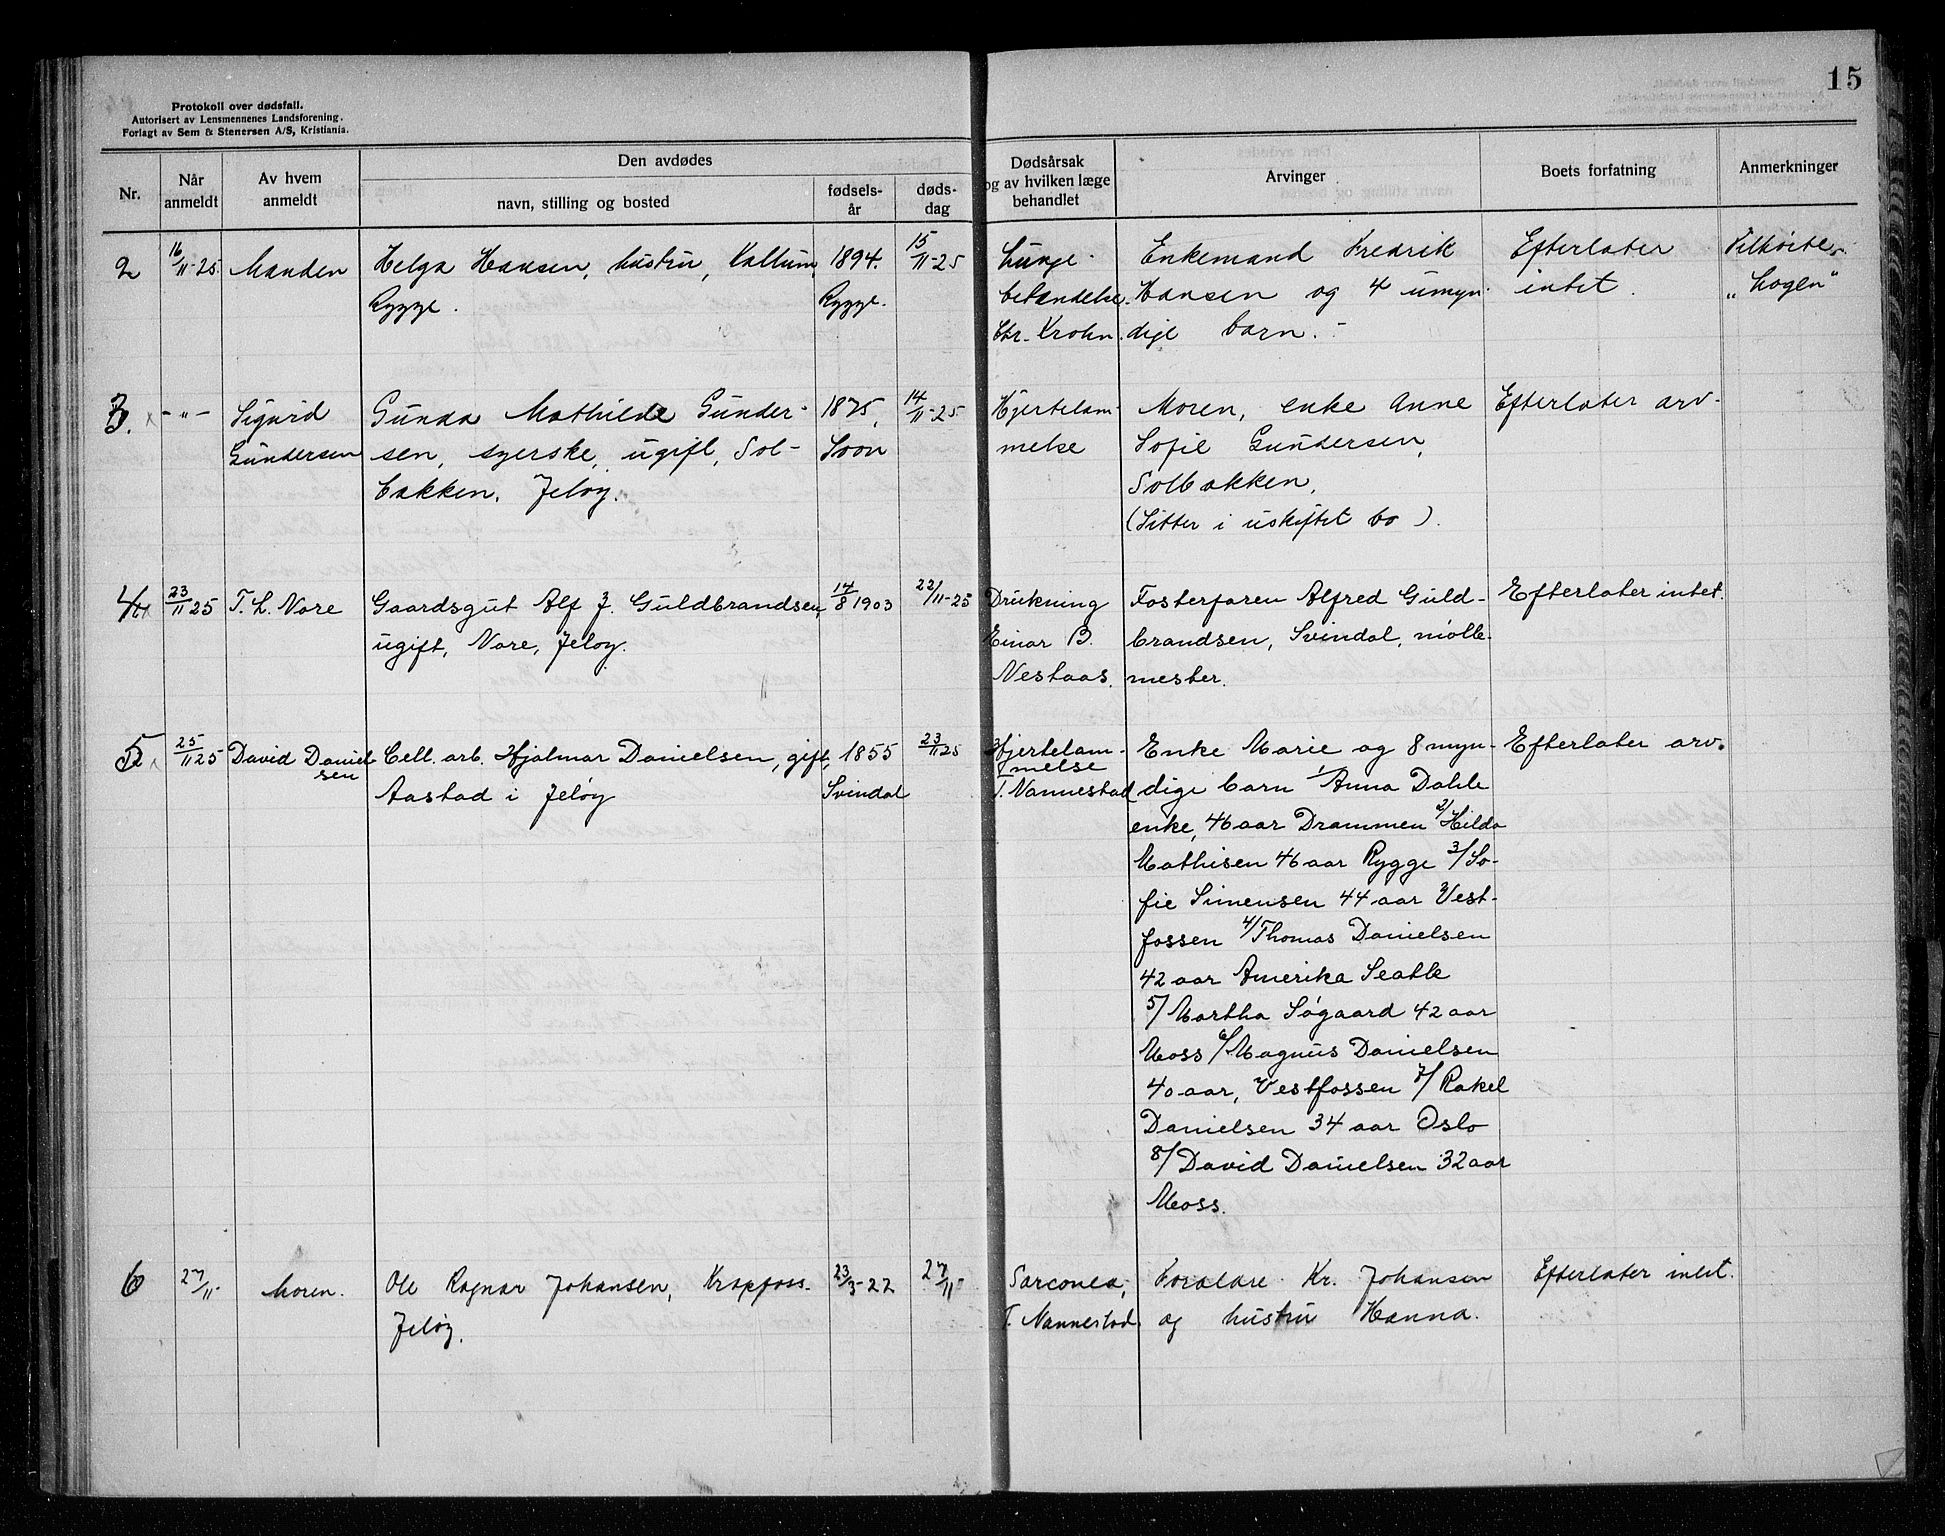 15
Protokoll over dødsfall.
Autorisert av Lensmennenes Landsforening.
Forlagt av Sem & Stenersen A/S, Kristiania.
Nr.
Når anmeldt
Av hvem anmeldt
Den avdødes
navn, stilling og bosted
fødsels-år
døds-dag
Dødsårsak og av hvilken læge behandlet
Arvinger
Boets forfatning
Anmerkninger
2
16/11-25
Manden
Helga Hansen, hustru, Kallum,
Rygge.
1894.
Rygge.
15/11-25
Lunge-
betændelse.
Chr. Krohn.
Enkemand Fredrik
Hansen og 4 umyn-
dige barn. -
Efterlater
intet.
"Logen"
3.
- " -
Sigurd
Gundersen
Gunda Mathilde Gunder-
sen, syerske, ugift, Sol-
bakken, Jeløy.
1875,
Soon
14/11-25
Hjertelam-
melse
Moren, enke Anne
Sofie Gundersen,
Solbakken,
(Sitter i uskiftet bo).
Efterlater arv.
4
23/11 25
T. L. Nore
Gaardsgut Alf J. Guldbrandsen,
ugift, Nore, Jeløy.
14/8 1903
22/11-25
Drukning
Einar B.
Nestaas.
Fosterfaren Alfred Guld-
brandsen, Svindal, mölle-
mester.
Efterlater intet.
5
25/11 25
David Daniel-
sen
Cell. arb. Hjalmar Danielsen, gift,
Aastad i Jeløy
1855
Svindal
23/11 25
Hjertelam-
melse
T. Nannestad
Enke Marie og 8 myn-
dige barn 1/ Anna Dahle
enke, 46 aar Drammen 2/ Hilda
Mathisen 46 aar Rygge 3/ So-
fie Simensen 44 aar Vest-
fossen 4/ Thomas Danielsen
42 aar Amerika Seatle
5/ Martha Søgaard 42 aar
Moss 6/ Magnus Danielsen
40 aar, Vestfossen 7/ Rakel
Danielsen 34 aar Oslo
8/ David Danielsen 32 aar
Moss.
Efterlater arv.
6
27/11
Moren.
Ole Ragnar Johansen, Krapfoss.
Jeløy.
23/3-22
27/11
T. Nannestad.
Forældre Kr. Johansen
og hustru Hanna.
Efterlater intet.